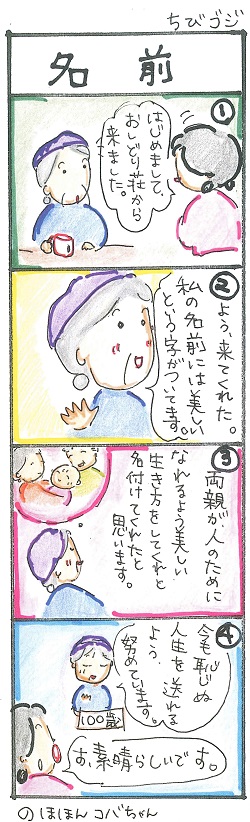 ちびゴジ
名前
①
はじめまして、
おしどり荘から
来ました。
②
よう、来てくれた。
私の名前には美しい
という字がついてます。
③
両親が人のために
なれるよう美しい
生き方をしてくれと
名付けてくれたと
思います。
④
今も恥じぬ
人生を送れる
よう、
努めています。
100歳
す、素晴らしいです。
のほほんコバちゃん